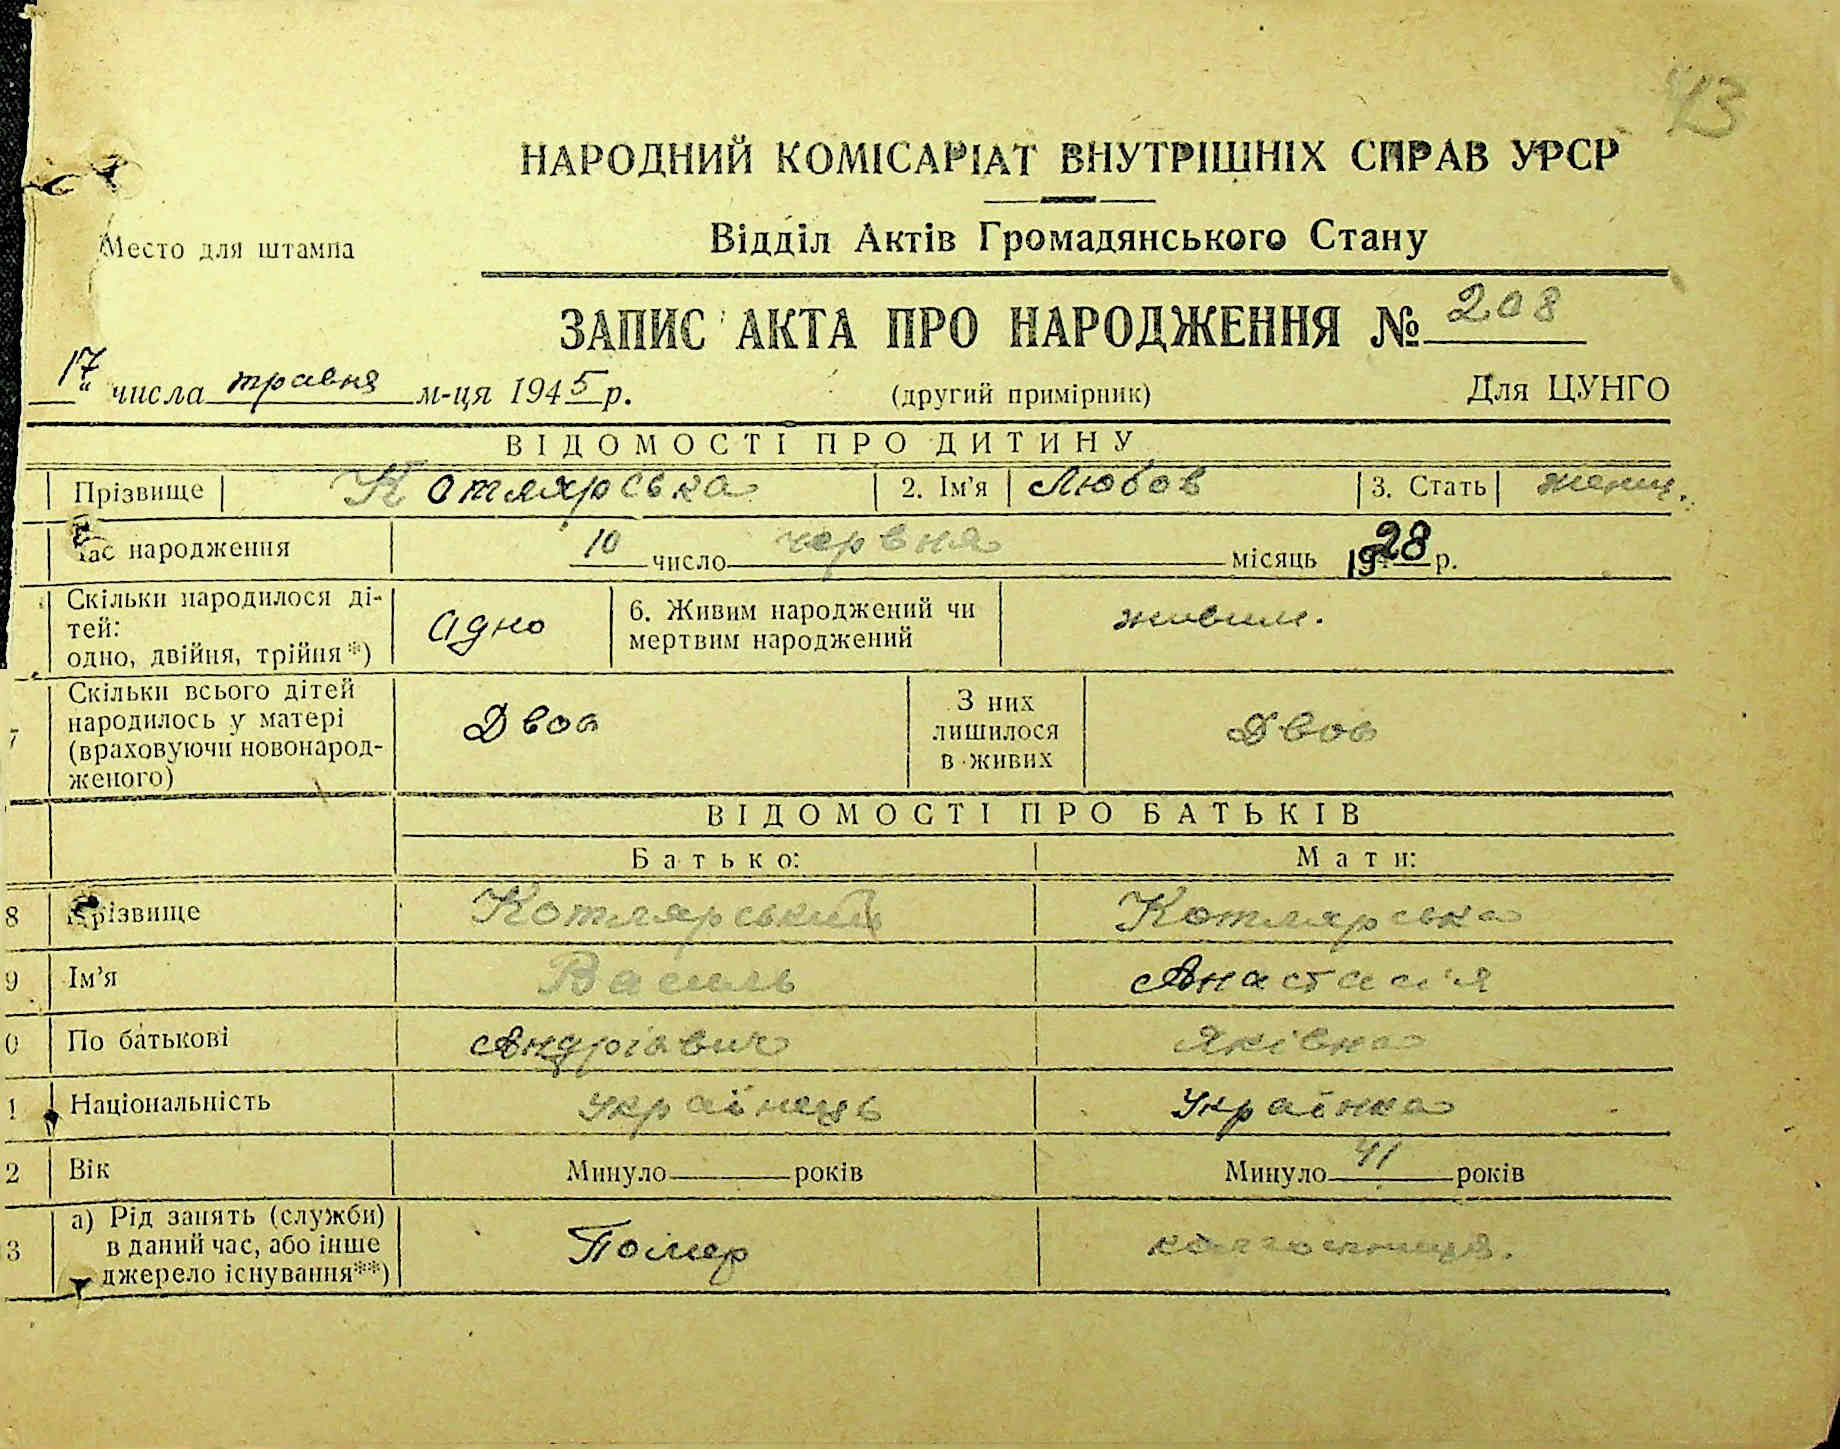 43
НАРОДНИЙ КОМІСАРІАТ ВНУТРІШНІХ СПРАВ УРСР
Відділ Актів Громадянського Стану
Место для штампа
ЗАПИС АКТА ПРО НАРОДЖЕННЯ № 208
17 " числа травня м-ця 1945 р. (другий примірник) Для ЦУНГО
ВІДОМОСТІ ПРО ДИТИНУ
Прізвище Котлярська 2. Ім'я Любов 3. Стать женщ.
Час народження 10 число червня місяць 1928 р.
Скільки народилося ді-
тей:
одно, двійня, трійня*) одно 6. Живим народжений чи
мертвим народжений живим.
7 Скільки всього дітей
народилось у матері
(враховуючи новонарод-
женого) Двоє З них
лишилося
в живих Двоє
ВІДОМОСТІ ПРО БАТЬКІВ
Батько: Мати:
8 Прізвище Котлярський Котлярська
9 Ім'я Василь Анастасія
0 По батькові Андрієвич Яківна
1 Національність Українець Українка
2 Вік Минуло років Минуло 41 років
3 а) Рід занять (служби)
в даний час, або інше
джерело існування**) Помер колгоспниця.